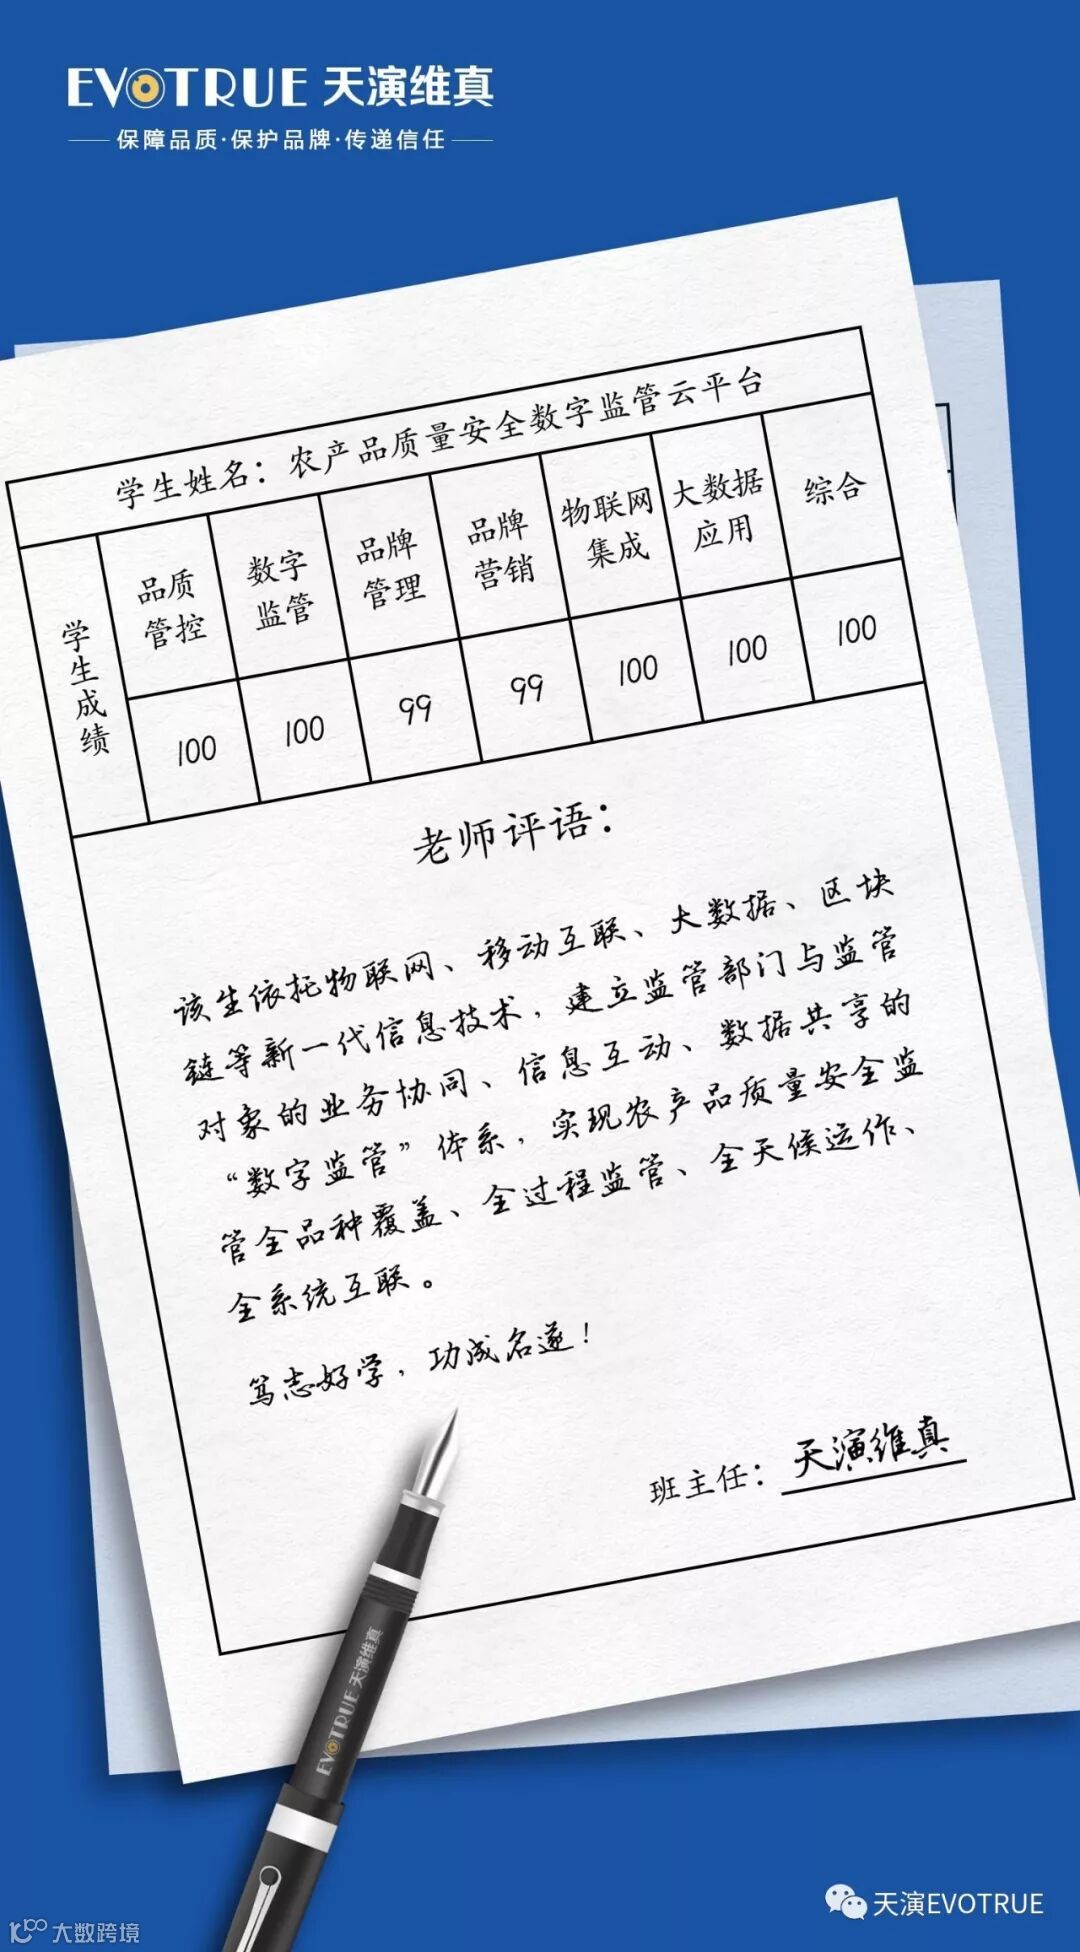 EVOTRUE 天演维真
保障品质·保护品牌·传递信任
学生姓名：农产品质量安全数字监管云平台
学生成绩
品质管控 数字监管 品牌管理 品牌营销 物联网集成 大数据应用 综合
100 100 99 99 100 100 100
老师评语：
该生依托物联网、移动互联、大数据、区块
链等新一代信息技术，建立监管部门与监管
对象的业务协同、信息互动、数据共享的
“数字监管”体系，实现农产品质量安全监
管全品种覆盖、全过程监管、全天候运作、
全系统互联。
笃志好学，功成名遂！
班主任：天演维真
EVOTRUE 天演维真
天演EVOTRUE
大数跨境